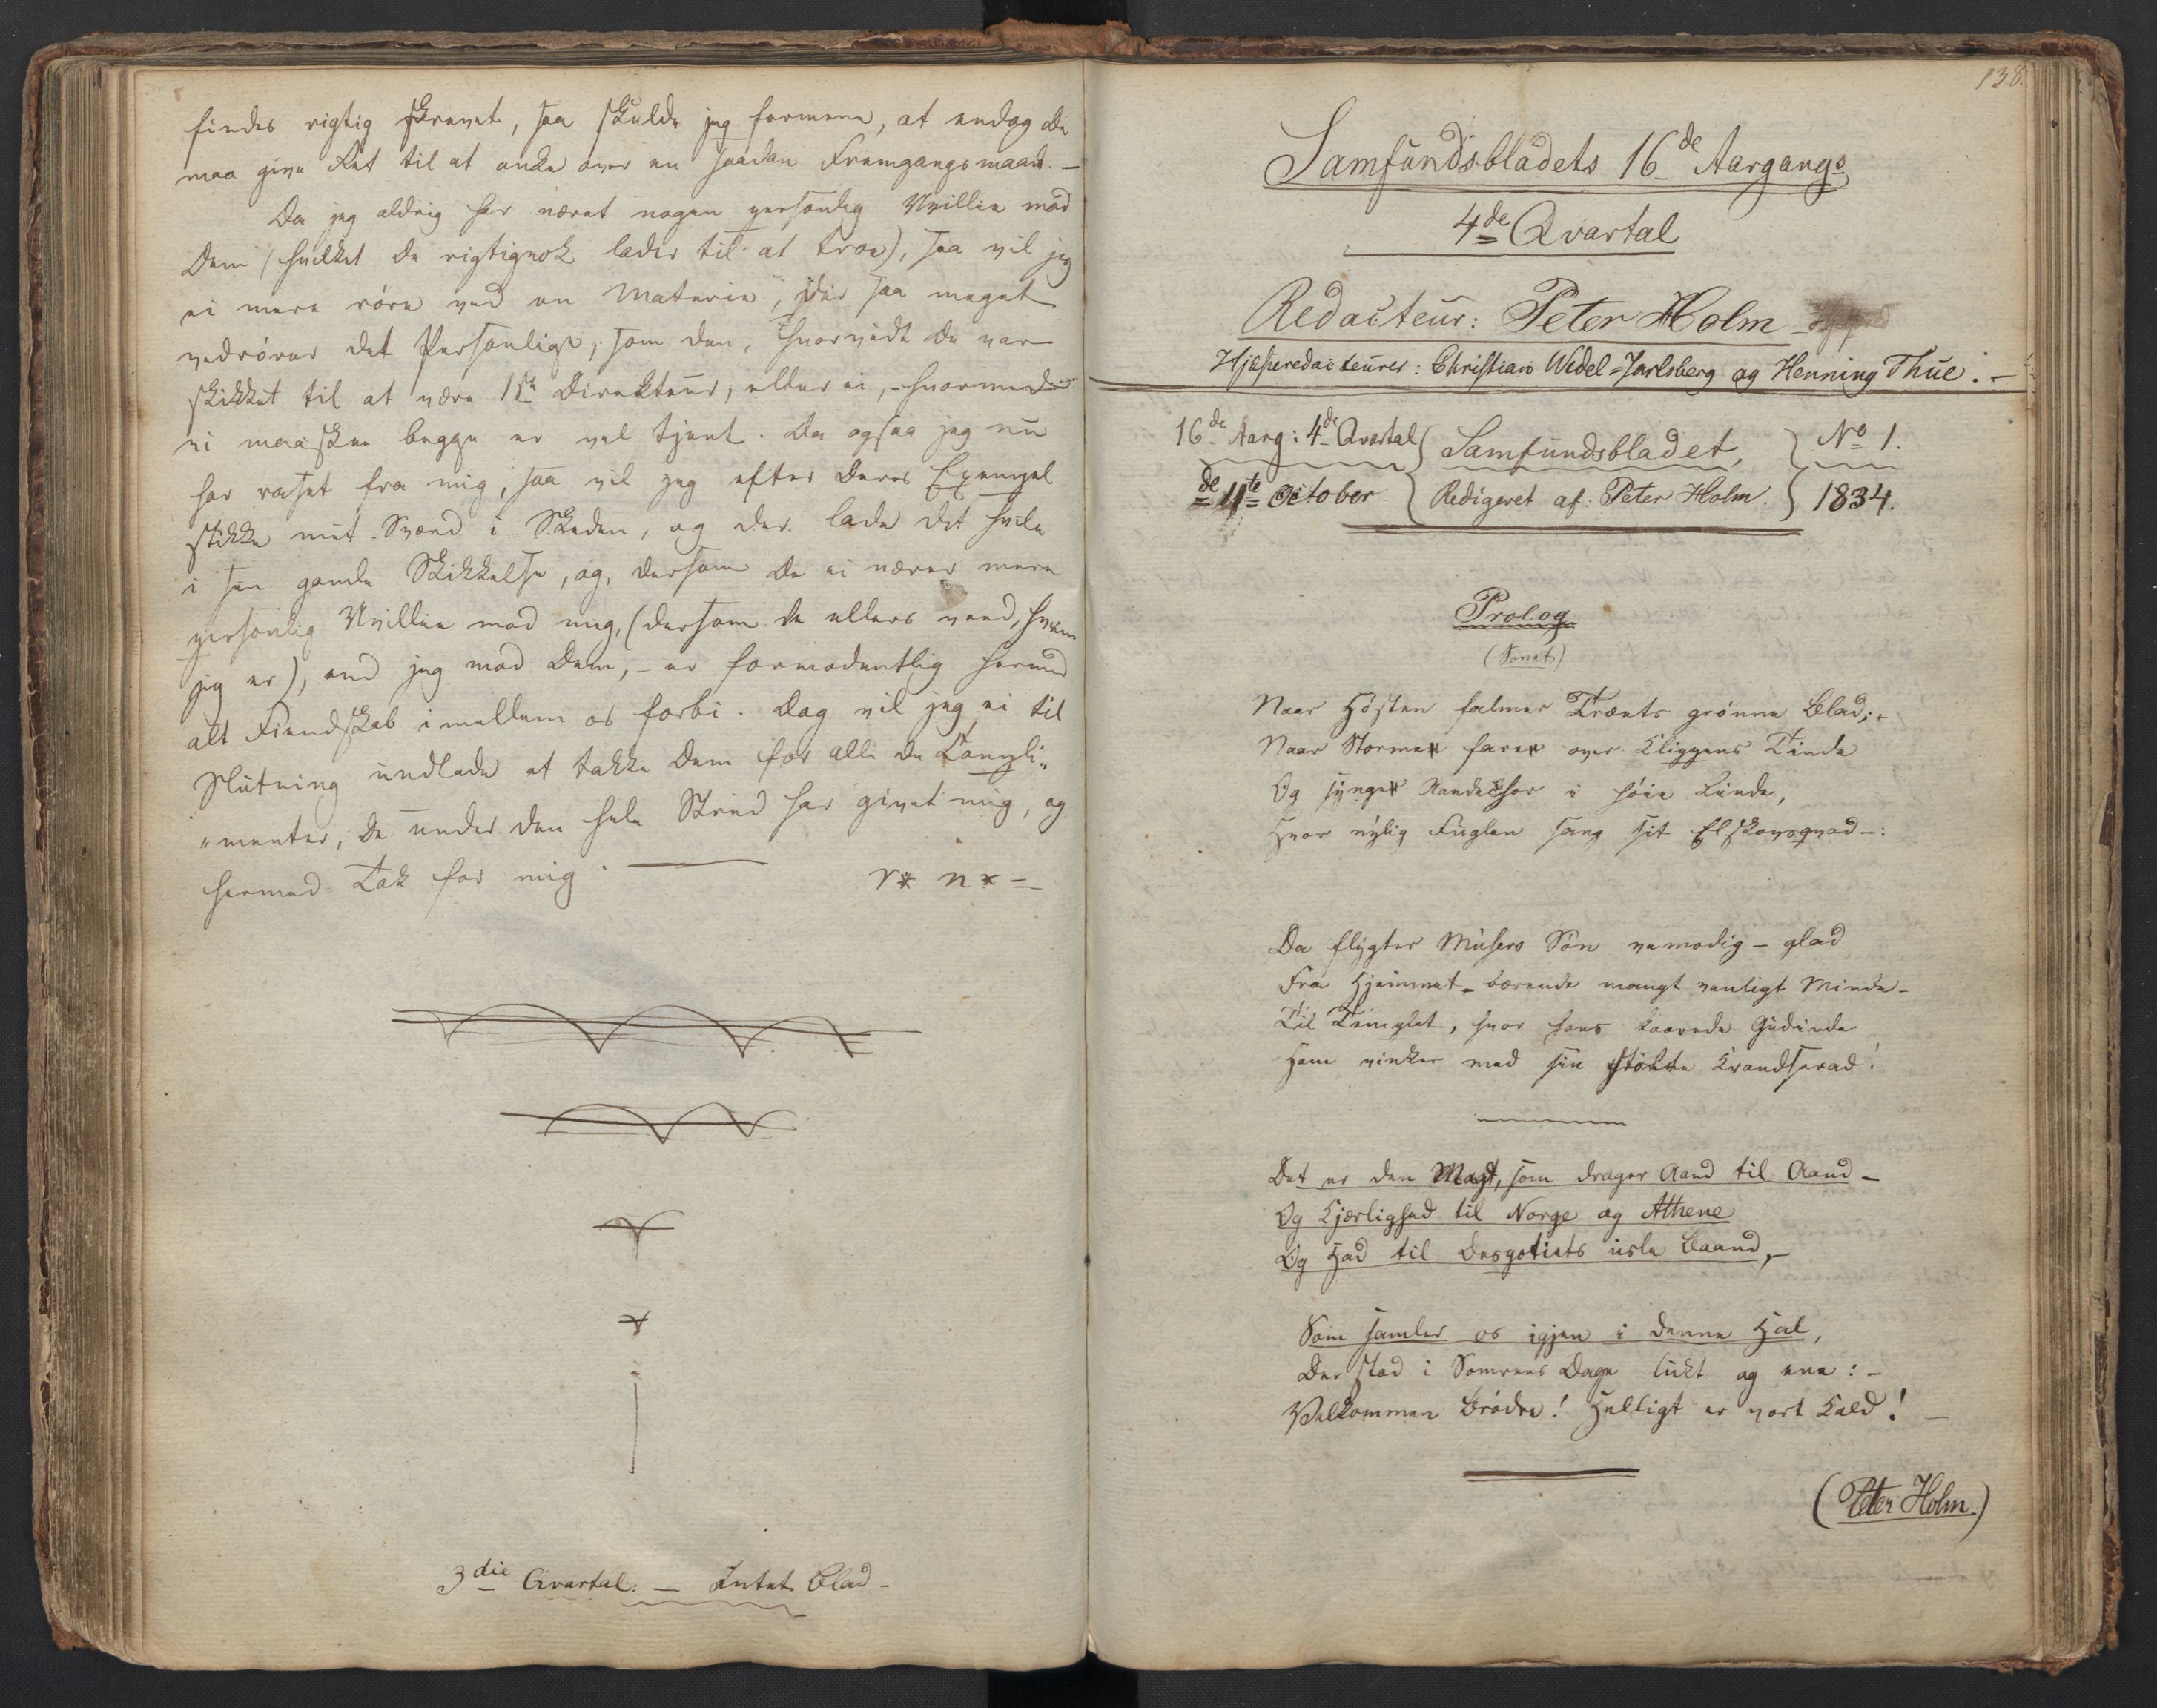 findes rigtig skrevet, saa skulde jeg formene, at endog De
maa give Ret til at anke over en saadan Fremgangsmaade. —
Da jeg aldrig har næret nogen personlig Uvillie mod
Dem (hvilket De rigtignok lader til at troe), saa vil jeg
ei mere røre ved en Materie, der saa meget
vedrører det Personlige, som den, hvorvidt De var
skikket til at være 1ste Direkteur, eller ei, - hvormed
vi maaskee begge er vel tjent. Da ogsaa jeg nu
har raset fra mig, saa vil jeg efter Deres Exempel
stikke mit Sværd i Skeden, og der lade det hvile
i sin gamle Skikkelse, og, dersom De ei nærer mere
personlig Uvillie mod mig, (dersom De ellers veed, hvem
jeg er), end jeg mod Dem, - er formodentlig hermed
alt Fiendskab imellem os forbi. Dog vil jeg ei til
Slutning undlade at takke Dem for alle de Compli„
„menter, De under den hele Strid har givet mig, og
hermed Tak for mig. —
r* n* =
3die Qvartal: — Intet Blad -
138.
Samfundsbladets 16de Aargangs
4de Qvartal
Redacteur: Peter Holm
Hjelperedacteurer: Christian Wedel=Jarlsberg og Henning Thue. -
16de Aarg: 4de Qvartal { Samfundsbladet, } No 1.
de 11te October { Redigeret af: Peter Holm. } 1834.
Prolog
(Sonet)
Naar Høsten falmer Træets grønne Blad;
Naar Stormen farer over Klippens Tinde
Og synger i høie Linde,
Hvor nylig Fuglen sang sit Elskovsqvad -:
Da flygter Musers Søn vemodig - glad
Fra Hjemmet - bærende mangt venligt Minde -
Til Templet, hvor hans kaarede Gudinde
Ham vinker med sin Krandserad!
Det er den Magt, som drager Aand til Aand -
Og Kjærlighed til Norge og Athene
Og Had til Despotiets usle Baand, -
Som samler os igjen i denne Hal,
Der stod i Somrens Dage lukt og ene: -
Velkommen Brødre! Helligt er vort Kald! -
(Peter Holm.)